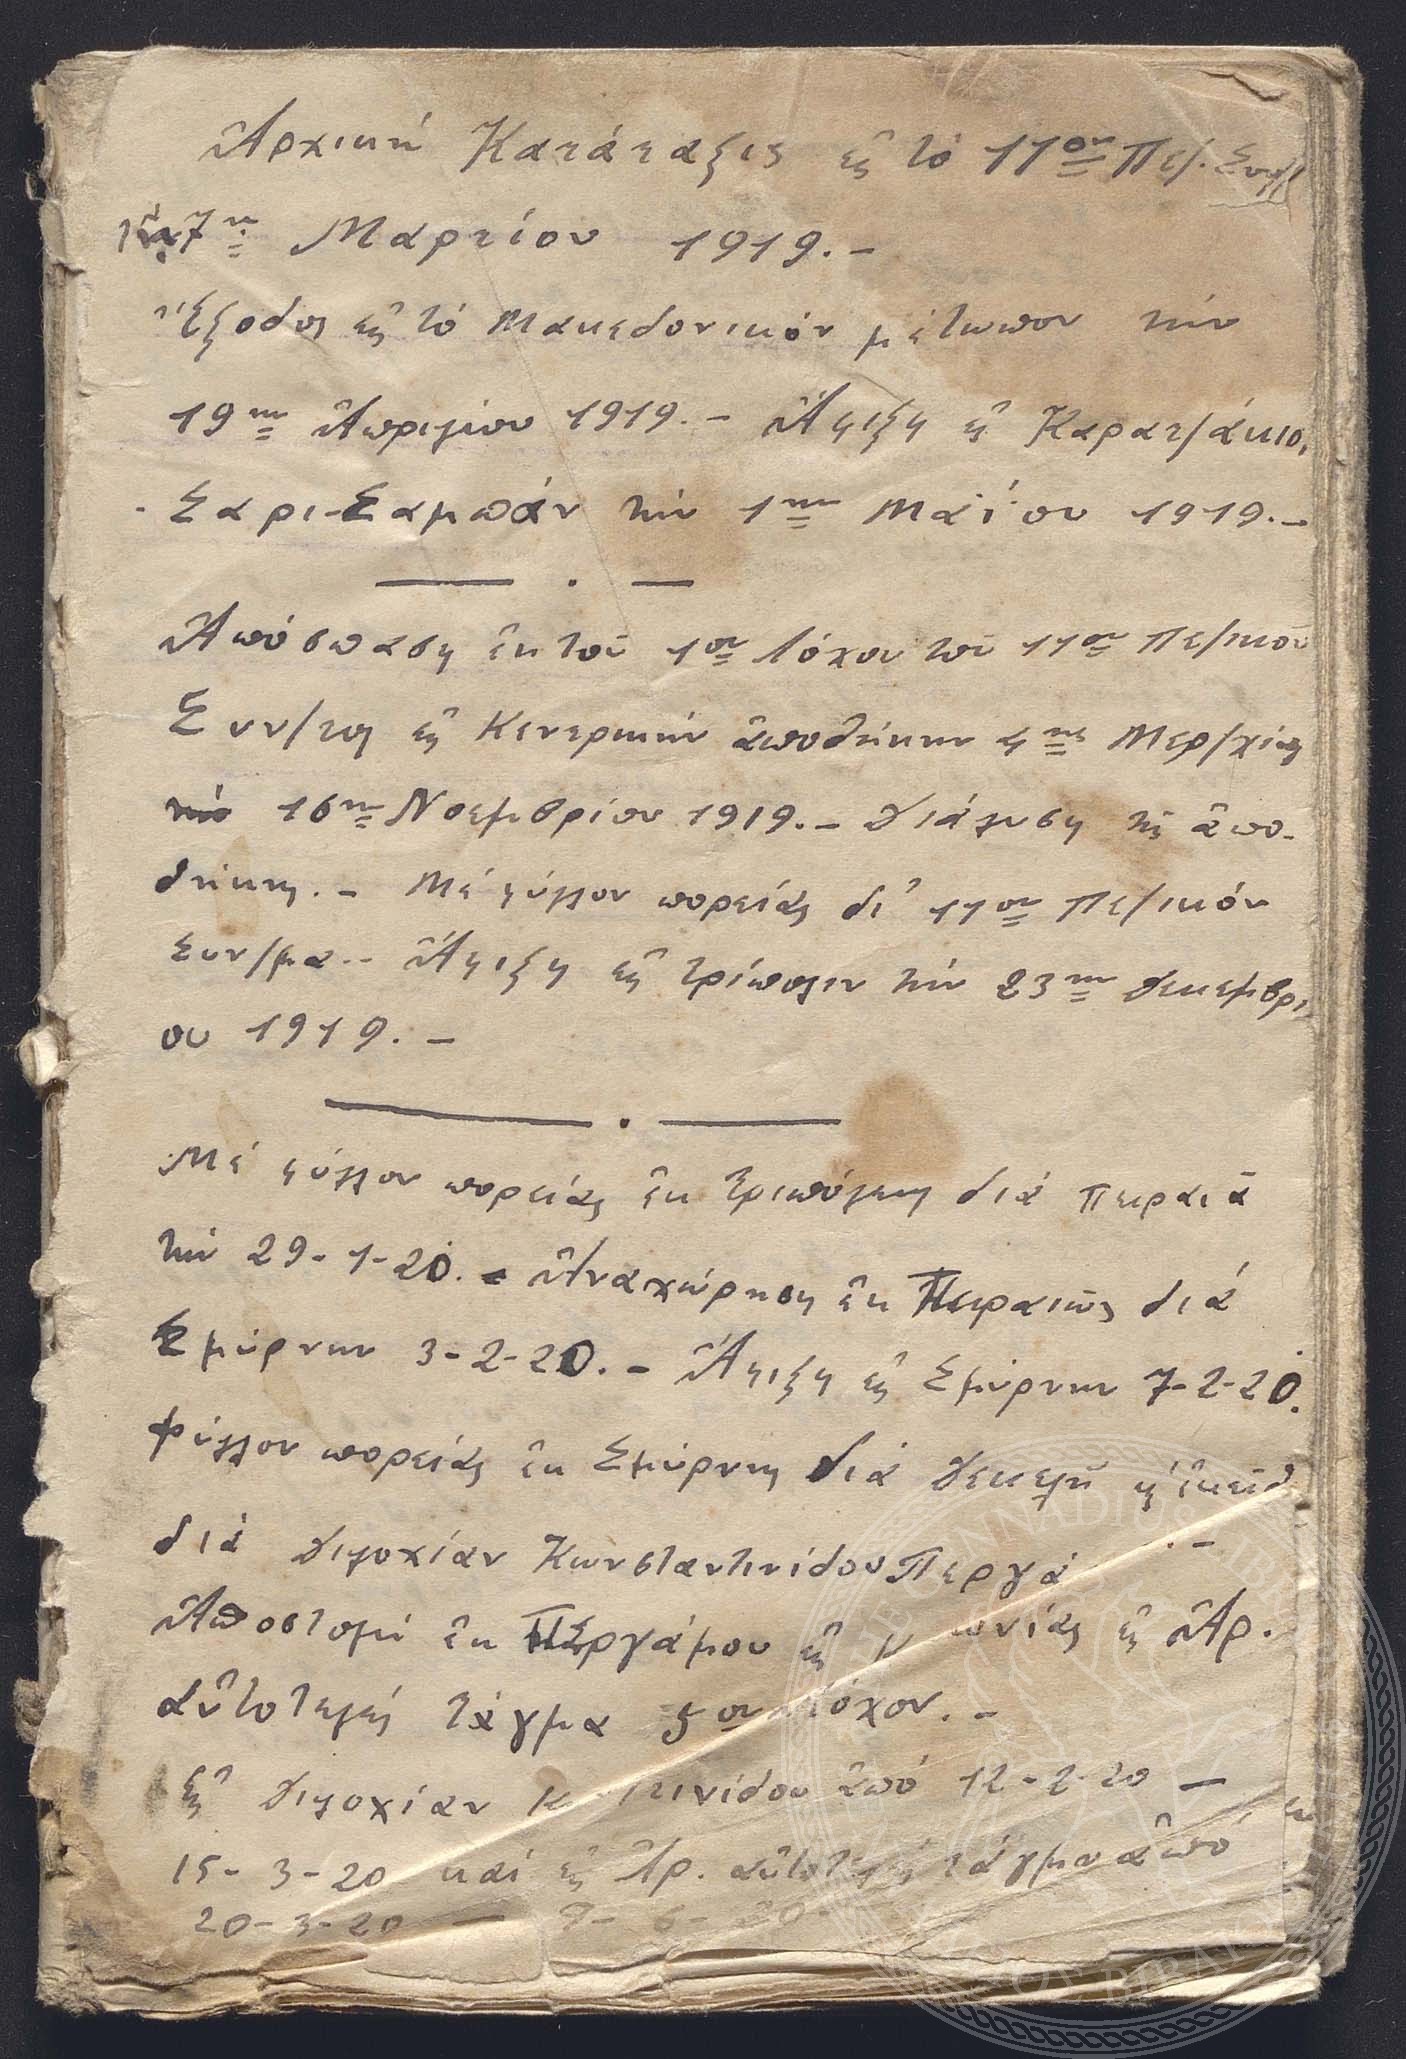 Ἀρχική Κατάταξις εἰς τό 11ον Πεζ. Συν/
7ῃ Μαρτίου 1919.-
Ἔξοδος εἰς τό Μακεδονικόν μέτωπον τήν
19ην Ἀπριλίου 1919.- Ἄφιξη εἰς Καρατζάκιοϊ
Σαρι-Σαμπάν τήν 1ην Μαΐου 1919.-
Ἀπόσπαση ἐκ τοῦ 1ου λόχου τοῦ 11ου Πε/ικοῦ
Συν/τος εἰς Κεντρικήν ἀποθήκην 4ης Μερ/χίας
τήν 16ην Νοεμβρίου 1919.- Διάλυση τῆς ἀπο-
θήκης.- Μέ φύλλον πορείας δι' 11ον Πε/ικόν
Συν/μα.- Ἄφιξη εἰς Τρίπολιν τήν 23ην Δεκεμβρί
ου 1919.-
Μέ φύλλον πορείας ἐκ Τριπόλεως διά Πειραιᾶ
τήν 29-1-20.- Ἀναχώρηση ἐκ Πειραιῶς διά
Σμύρνην 3-2-20.- Ἄφιξη εἰς Σμύρνην 7-2-20.
Φύλλον πορείας ἐκ Σμύρνης διά Δεκελῆ κι' ἐκεῖθ
διά Διλοχίαν Κωνσταντινίδου Περγά .-
Ἀποστολή ἐκ Περγάμου εἰς Κ ωνίας εἰς Ἀρ.
αὐτοτελές τάγμα 5ον λόχον.-
Εἰς Διλοχίαν Κ τινίδου ἀπό 12-2-20 -
15-3-20 καί εἰς Ἀρ. αὐτοτελές τάγμα ἀπό
20-3-20 - 9-6-20